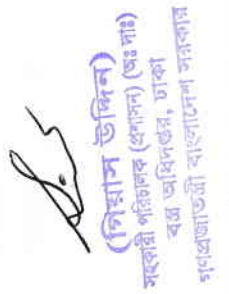 (নিয়াজ উদ্দিন)
সহকারী পরিচালক (প্রশাসন) (অঃ দাঃ)
বস্ত্র অধিদপ্তর, ঢাকা
গণপ্রজাতন্ত্রী বাংলাদেশ সরকার